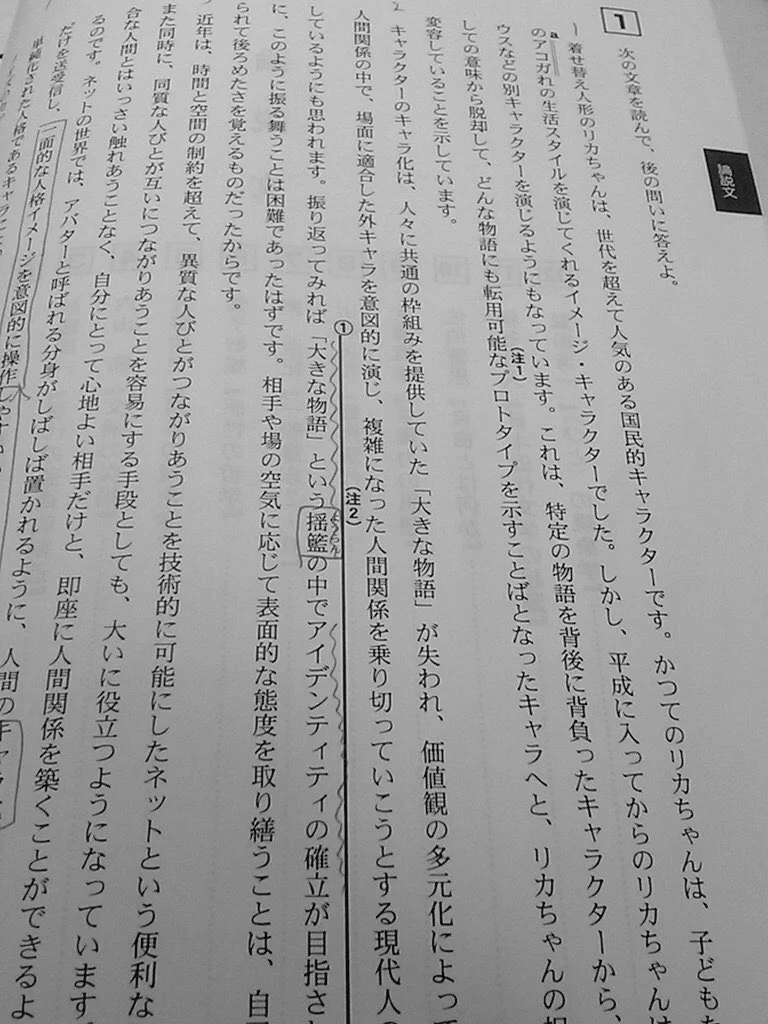 論説文
1
次の文章を読んで、後の問いに答えよ。
着せ替え人形のリカちゃんは、世代を超えて人気のある国民的キャラクターです。かつてのリカちゃんは、子どもた
a
のアコガれの生活スタイルを演じてくれるイメージ・キャラクターでした。しかし、平成に入ってからのリカちゃんは
ウスなどの別キャラクターを演じるようにもなっています。これは、特定の物語を背後に背負ったキャラクターから、
(注1)
しての意味から脱却して、どんな物語にも転用可能なプロトタイプを示すことばとなったキャラへと、リカちゃんの
変容していることを示しています。
キャラクターのキャラ化は、人々に共通の枠組みを提供していた「大きな物語」が失われ、価値観の多元化によって
(注2)
人間関係の中で、場面に適合した外キャラを意図的に演じ、複雑になった人間関係を乗り切っていこうとする現代人の
①
しているようにも思われます。振り返ってみれば「大きな物語」という揺籃の中でアイデンティティの確立が目指さ
ようらん
に、このように振る舞うことは困難であったはずです。相手や場の空気に応じて表面的な態度を取り繕うことは、自
られて後ろめたさを覚えるものだったからです。
近年は、時間と空間の制約を超えて、異質な人びとがつながりあうことを技術的に可能にしたネットという便利な
また同時に、同質な人びとが互いにつながりあうことを容易にする手段としても、大いに役立つようになっています。
合な人間とはいっさい触れあうことなく、自分にとって心地よい相手だけと、即座に人間関係を築くことができるよ
るのです。ネットの世界では、アバターと呼ばれる分身がしばしば置かれるように、人間の
だけを送受信し、一面的な人格イメージを意図的に操作しやすい
単純化された人格であるキャラ